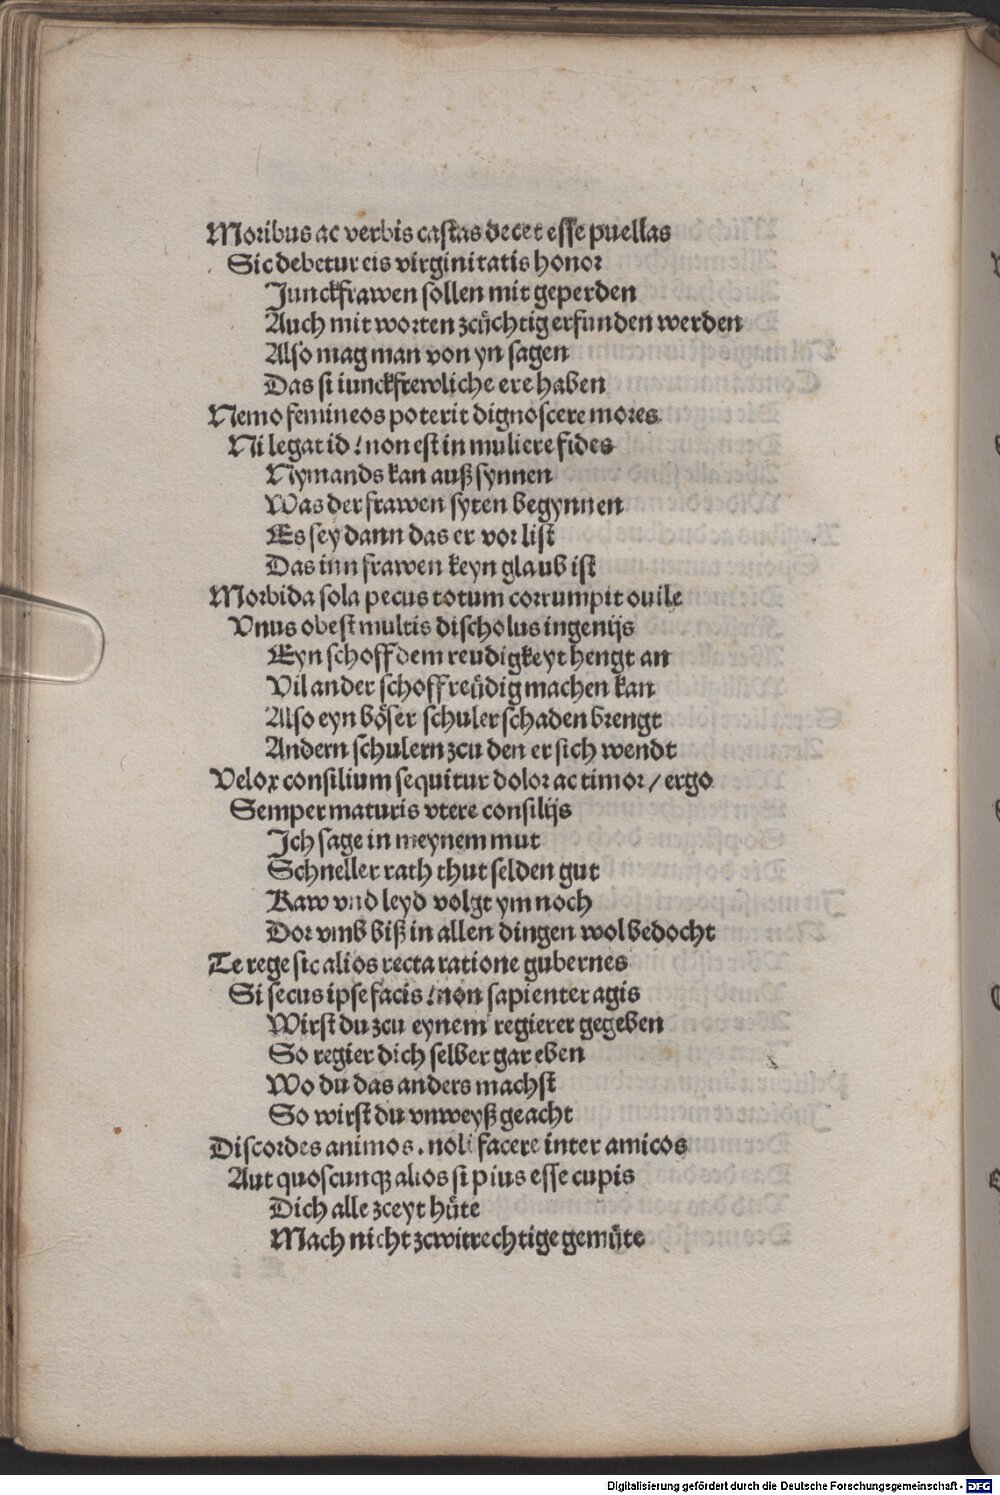 Moribus ac verbis castas decet esse puellas
Sic debetur eis virginitatis honor
Junckfrawen sollen mit geperden
Auch mit worten zcüchtig erfunden werden
Also mag man von yn sagen
Das si iunckfrewliche ere haben
Nemo femineos poterit dignoscere mores
Ni legat id / non est in muliere fides
Nymands kan auß synnen
Was der frawen syten begynnen
Es sey dann das er vor list
Das inn frawen keyn glaub ist
Morbida sola pecus totum corrumpit ouile
Vnus obest multis discholus ingenijs
Eyn schoff dem reudigkeyt hengt an
Vil ander schoff reüdig machen kan
Also eyn böser schuler schaden brengt
Andern schulern zcu den er sich wendt
Velox consilium sequitur dolor ac timor / ergo
Semper maturis vtere consilijs
Ich sage in meynem mut
Schneller rath thut selden gut
Raw vnd leyd volgt ym noch
Dor vmb biß in allen dingen wol bedocht
Te rege sic alios recta ratione gubernes
Si secus ipse facis / non sapienter agis
Wirst du zcu eynem regierer gegeben
So regier dich selber gar eben
Wo du das anders machst
So wirst du vnweyß geacht
Discordes animos . noli facere inter amicos
Aut quoscunqꝫ alios si pius esse cupis
Dich alle zceyt hüte
Mach nicht zcwitrechtige gemüte
Digitalisierung gefördert durch die Deutsche Forschungsgemeinschaft - DFG